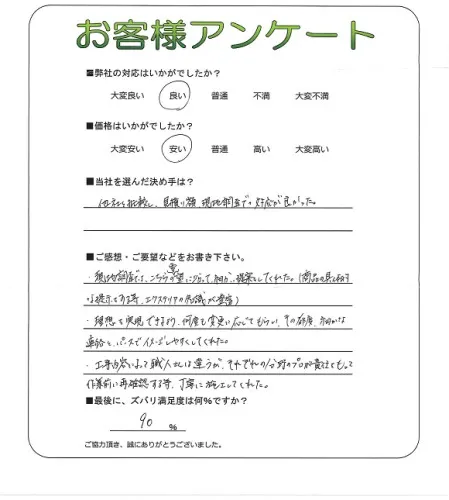 お客様アンケート
■弊社の対応はいかがでしたか？
大変良い 良い 普通 不満 大変不満
■価格はいかがでしたか？
大変安い 安い 普通 高い 大変高い
■当社を選んだ決め手は？
他社と比較し、見積り額、現地調査での対応が良かった。
■ご感想・ご要望などをお書き下さい。
・現地調査では、こちらの要望に沿って、細かく提案をしてくれた。(商品の見本
を提示する等、エクステリアの知識が豊富)
・理想を実現できるよう、何度も変更に応じてもらい、その都度、細かな
連絡と、パースでイメージしやすくしてくれた。
・工事内容によって職人さんは違うが、それぞれの分野のプロが責任をもって
作業前に再確認する等、丁寧に施工してくれた。
■最後に、ズバリ満足度は何％ですか？
90 ％
ご協力頂き、誠にありがとうございました。